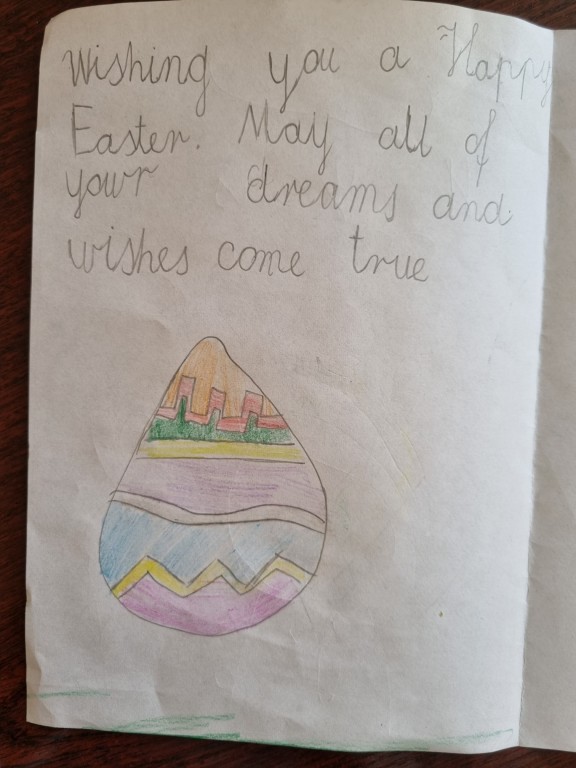 Wishing you a Happy
Easter. May all of
your dreams and
wishes come true